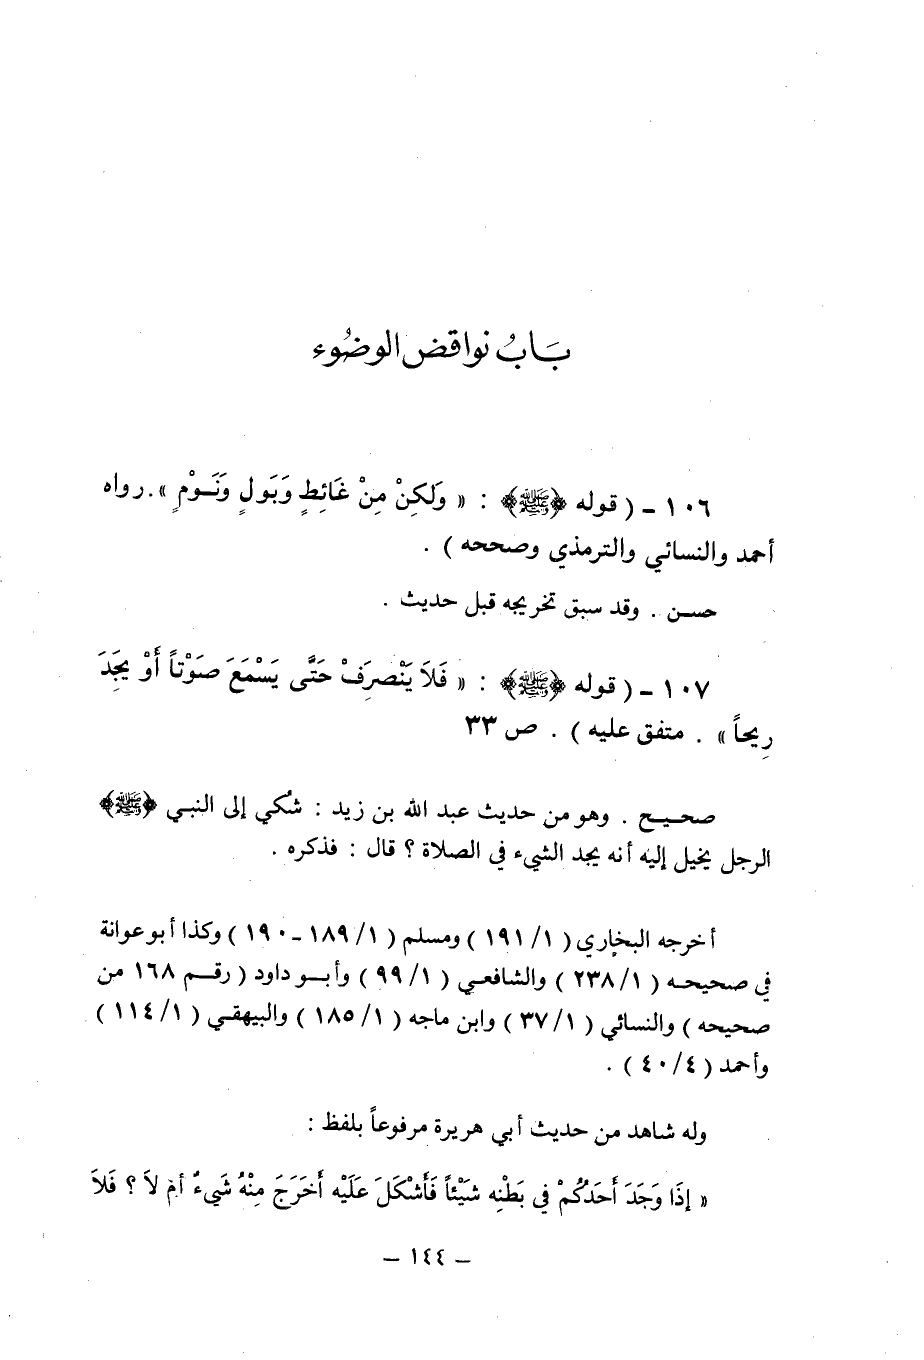 بَابُ نواقض الوضُوء
١٠٦ - ( قوله ﴿ﷺ﴾ : « وَلَكِنْ مِنْ غَائِطٍ وَبَولٍ وَنَوْمٍ » . رواه
أحمد والنسائي والترمذي وصححه ) .
حسن . وقد سبق تخريجه قبل حديث .
١٠٧ - ( قوله ﴿ﷺ﴾ : « فَلاَ يَنْصرِفْ حَتَّى يَسْمَعَ صَوْتاً أَوْ يَجِدَ
رِيحاً » . متفق عليه ) . ص ٣٣
صحيح . وهو من حديث عبد الله بن زيد : شُكي إلى النبي ﴿ﷺ﴾
الرجل يخيل إليه أنه يجد الشيء في الصلاة ؟ قال : فذكره .
أخرجه البخاري ( ١/ ١٩١ ) ومسلم ( ١/ ١٨٩ - ١٩٠ ) وكذا أبو عوانة
في صحيحه ( ١/ ٢٣٨ ) والشافعي ( ١/ ٩٩ ) وأبو داود ( رقم ١٦٨ من
صحيحه ) والنسائي ( ١/ ٣٧ ) وابن ماجه ( ١/ ١٨٥ ) والبيهقي ( ١/ ١١٤ )
وأحمد ( ٤/ ٤٠ ) .
وله شاهد من حديث أبي هريرة مرفوعاً بلفظ :
« إذَا وَجَدَ أَحَدُكُمْ في بَطْنِه شَيْئاً فَأَشْكَلَ عَلَيْه أَخَرَجَ مِنْهُ شَيءٌ أمْ لاَ ؟ فَلاَ
- ١٤٤ -